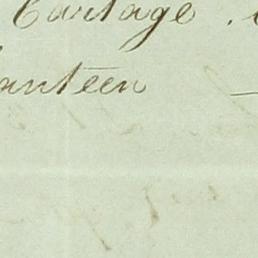 Cartage .
anteen